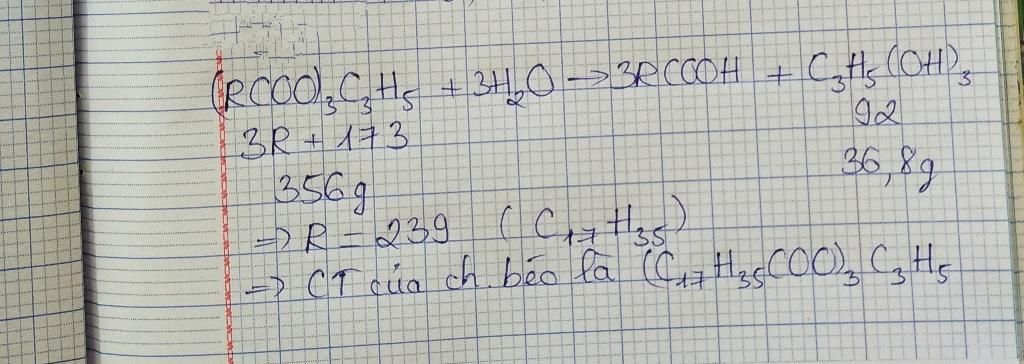 (RCOO)₃C₃H₅ + 3H₂O → 3RCOOH + C₃H₅(OH)₃
3R + 173 92
356g 36,8g
=> R = 239 (C₁₇H₃₅)
=> CT của ch. béo là (C₁₇H₃₅COO)₃C₃H₅